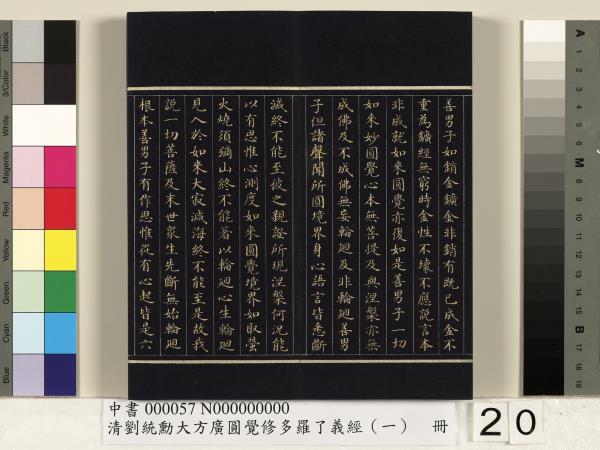 善男子如銷金鑛金非銷有既已成金不
重為鑛經無窮時金性不壞不應說言本
非成就如來圓覺亦復如是善男子一切
如來妙圓覺心本無菩提及與涅槃亦無
成佛及不成佛無妄輪廻及非輪廻善男
子但諸聲聞所圓境界身心語言皆悉斷
滅終不能至彼之親證所現涅槃何況能
以有思惟心測度如來圓覺境界如取螢
火燒須彌山終不能著以輪廻心生輪廻
見入於如來大寂滅海終不能至是故我
說一切菩薩及末世眾生先斷無始輪廻
根本善男子有作思惟從有心起皆是六
中書 000057 N000000000
清劉統勳大方廣圓覺修多羅了義經（一） 冊
20
Black
3/Color
White
Magenta
Red
Yellow
Green
Cyan
Blue
A
1
2
3
4
5
6
M
8
9
10
11
12
13
14
15
B
17
18
19